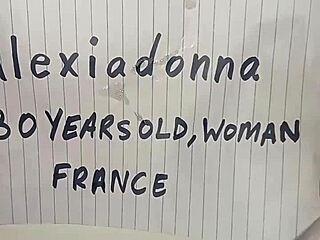 lexiadonna
30 YEARS OLD, WOMAN
FRANCE